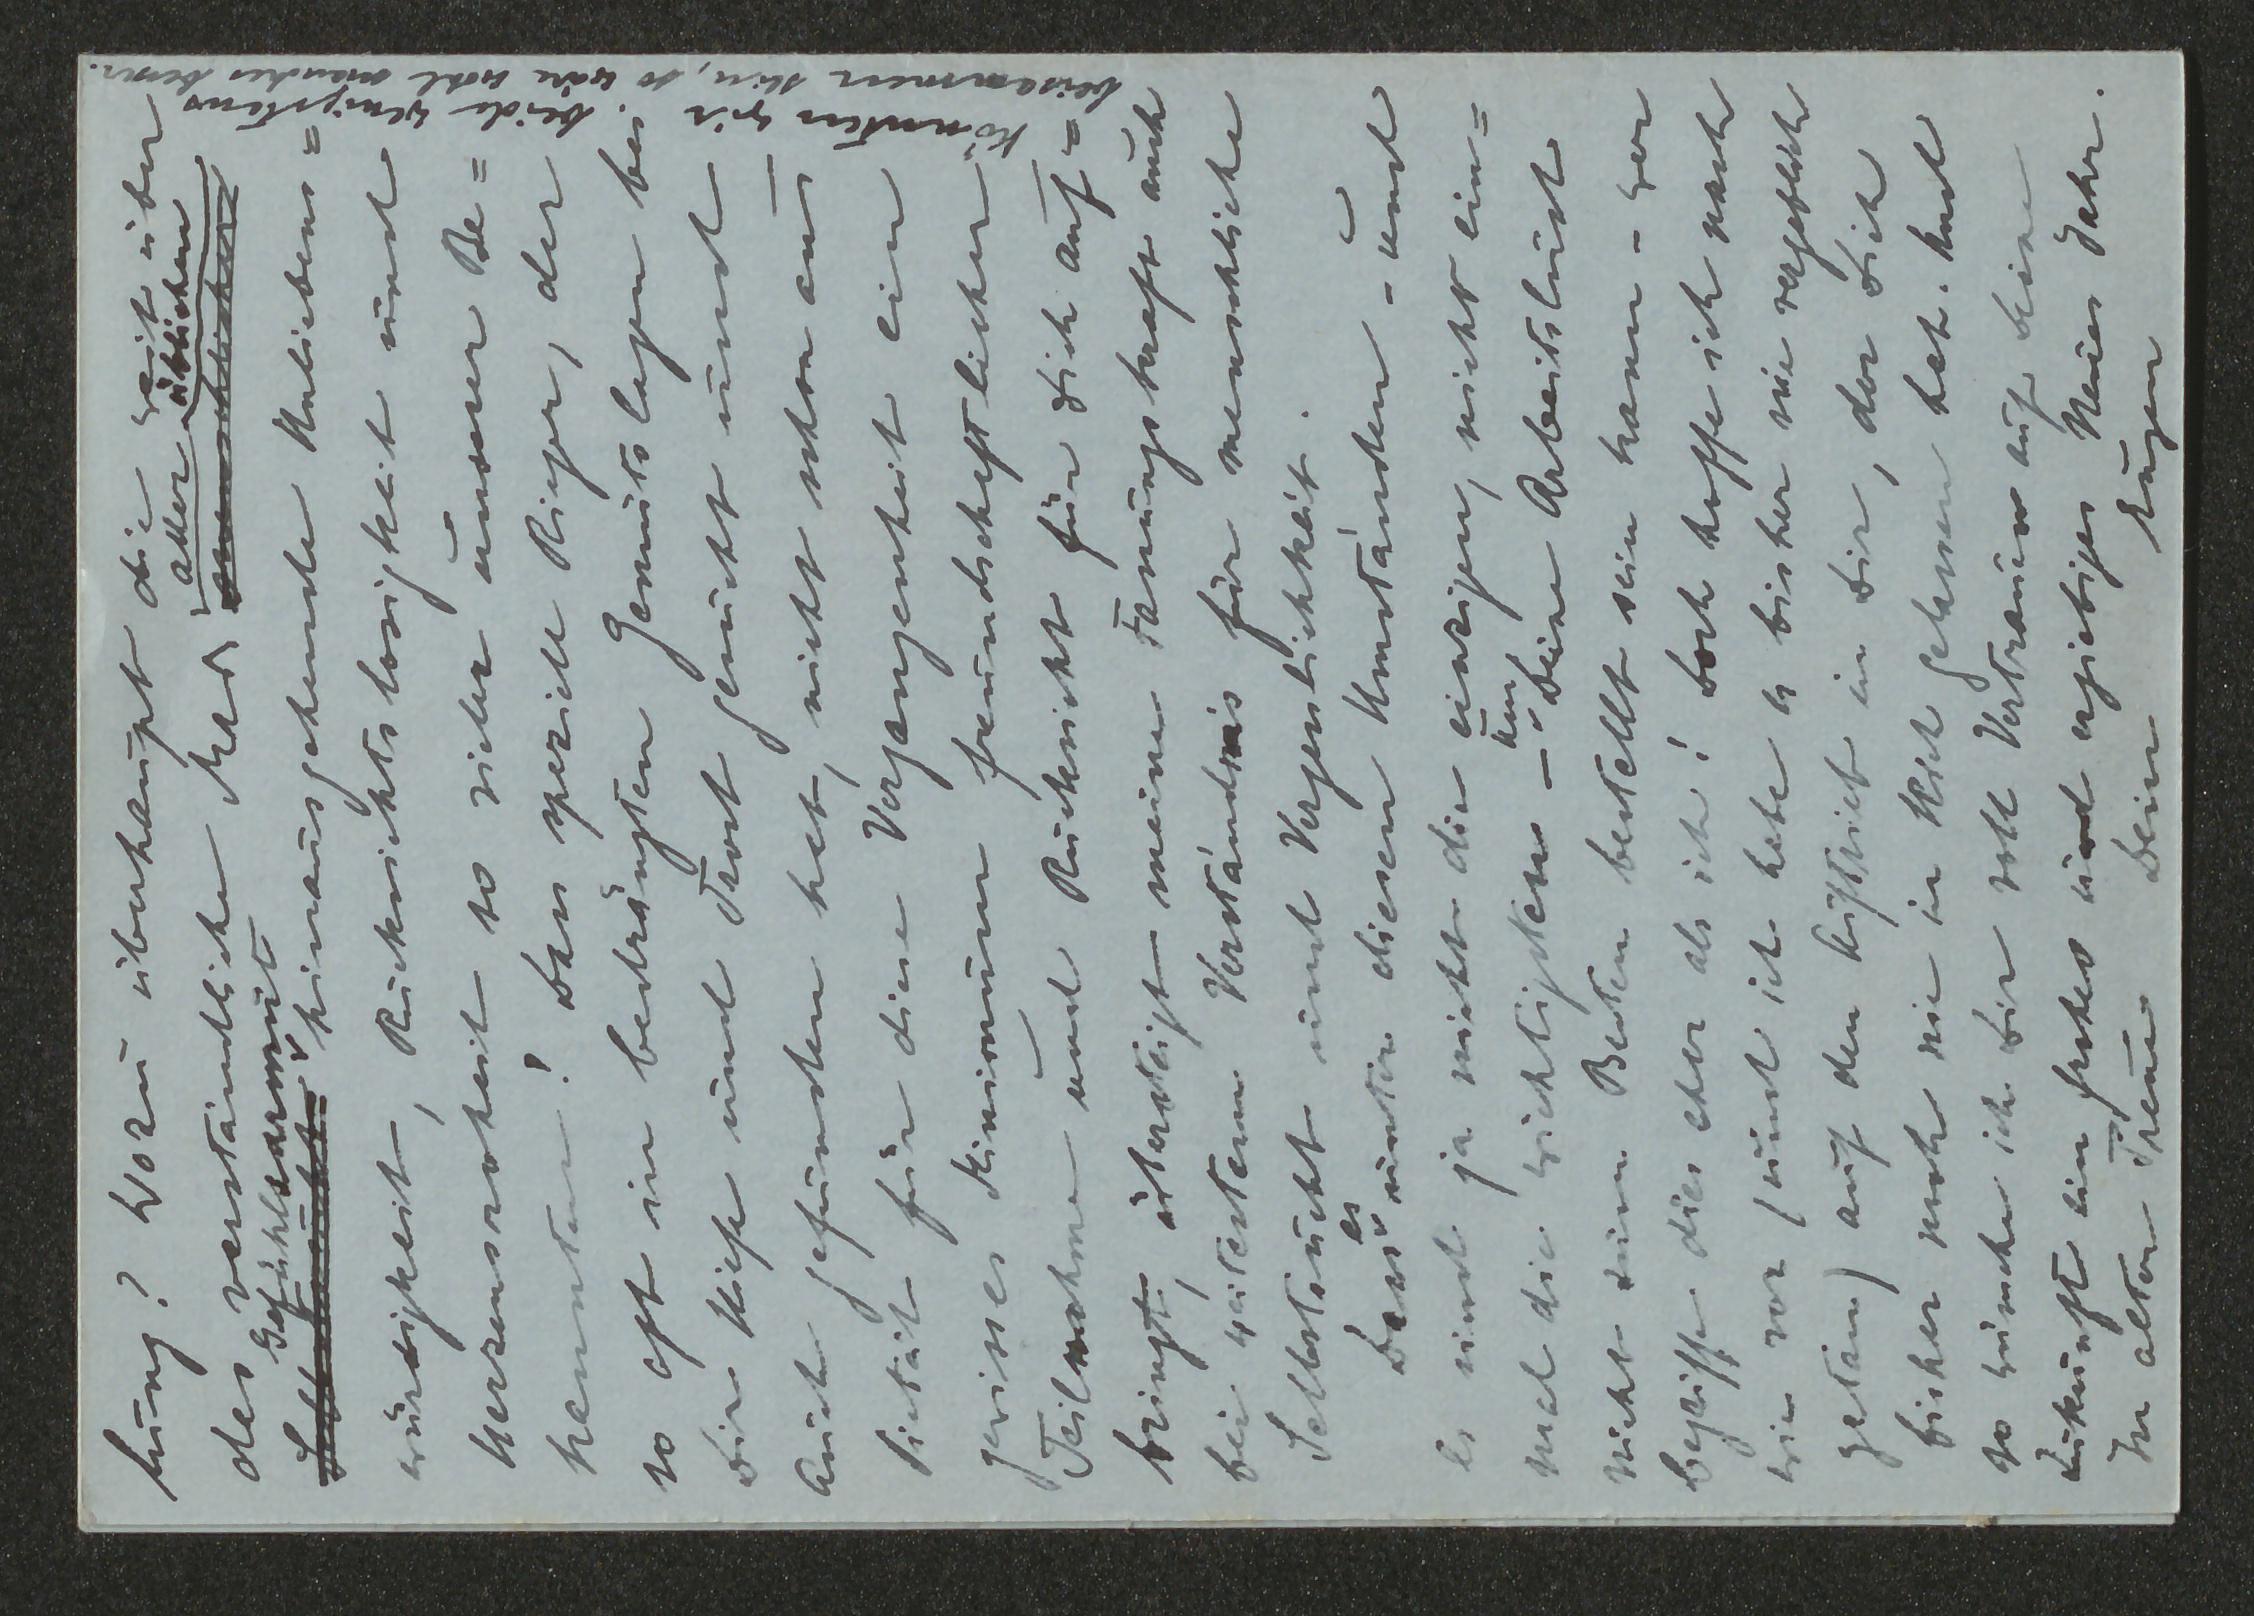 lung? Wozu überhaupt die weit über
das verständliche Maß aller üblichen menschlichen
Gefühlsarmut hinausgehende Unliebens=
würdigkeit, Rücksichtslosigkeit und
Herzensroheit so vieler unserer Be=
kannten? Dass speziell Rieger, der
so oft in bedrängten Gemütslagen bei
Dir Hilfe und Trost gesucht und
auch gefunden hat, nicht schon aus
Pietät für diese Vergangenheit ein
gewisses Minimum freundschaftlicher
Teilnahme und Rücksicht für Dich auf=
bringt, übersteigt meine Fassungskraft auch
bei weitestem Verständnis für menschliche
Selbstsucht und Vergesslichkeit.
Dass es unter diesen Umständen – und
es sind ja nicht die einzigen, nicht ein=
mal die wichtigsten – um Deine Arbeitslust
nicht zum Besten bestellt sein kann – wer
begriffe dies eher als ich! Doch hoffe ich nach
wie vor (und ich habe es bisher nie vergeblich
getan) auf den Auftrieb in Dir, der Dich
bisher noch nie im Stich gelassen hat. Und
so wünsche ich Dir voll Vertrauen auf Deine
Zukunft ein frohes und ergiebiges Neues Jahr.
In alter Treue Dein Eugen
Könnten wir beide wenigstens
beisammen sein, so wäre wohl manches besser.